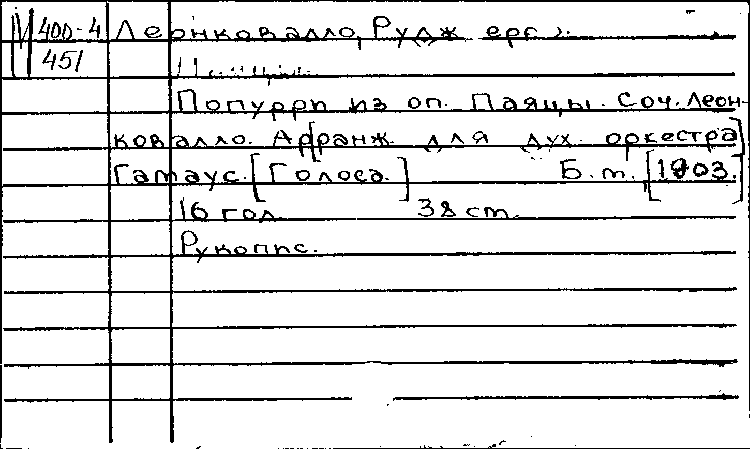 М 400-4 Леонковалло, Рудж
451
Попурри из оп. Паяцы. Соч. Леон-
ковалло. Ар[ранж. для дух. оркестра]
Гамаус. [Голоса.] Б.м., [1903.]
16 гол. 38 cm.
Рукопис.